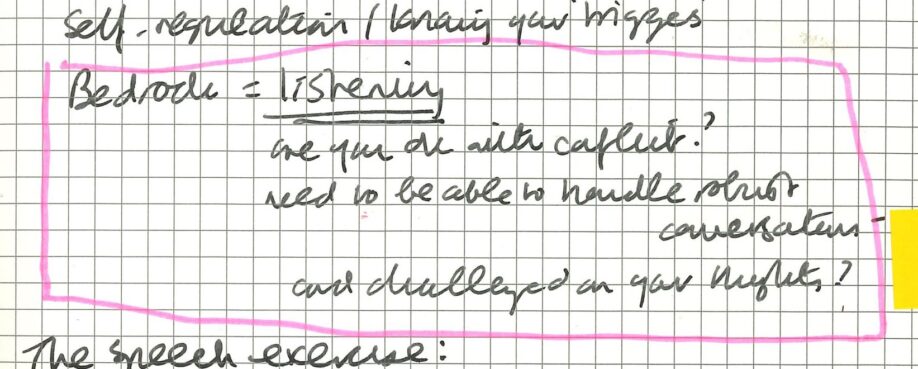 Self-regulation / knowing your triggers
Bedrock = listening
are you ok with conflict?
need to be able to handle robust
conversations -
and challenged on your thoughts?
The speech exercise: